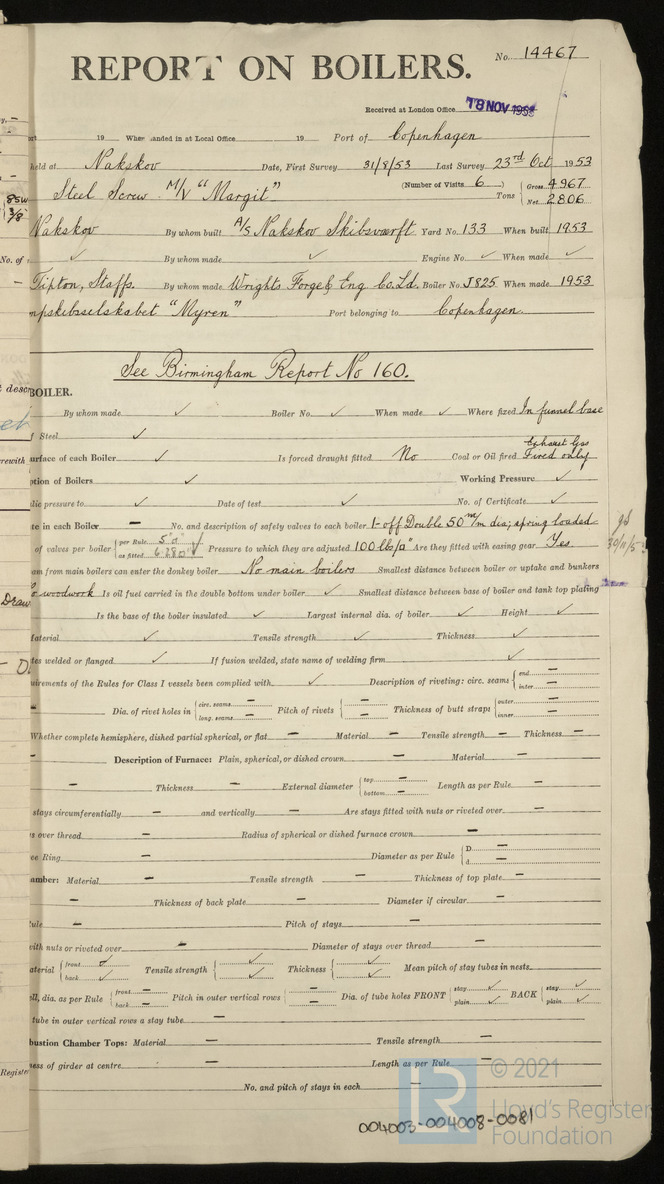 REPORT ON BOILERS.
No. 14467
Received at London Office 18 NOV 1953
19 When handed in at Local Office 19 Port of Copenhagen
held at Nakskov Date, First Survey 31/8/53 Last Survey 23rd Oct. 1953
Steel Screw M/V "Margit" (Number of Visits 6) Tons Gross 4967
Net 2806
Nakskov By whom built A/S Nakskov Skibsværft Yard No. 133 When built 1953
✓ By whom made ✓ Engine No. ✓ When made ✓
Tipton, Staffs. By whom made Wrights Forge & Eng. Co. Ld. Boiler No. J825 When made 1953
mpskibsselskabet "Myren" Port belonging to Copenhagen
See Birmingham Report No 160.
BOILER.
By whom made ✓ Boiler No. ✓ When made ✓ Where fixed In funnel base
f Steel ✓
urface of each Boiler ✓ Is forced draught fitted No Coal or Oil fired Exhaust Gas Fired only
ption of Boilers ✓ Working Pressure ✓
lic pressure to ✓ Date of test ✓ No. of Certificate ✓
te in each Boiler — No. and description of safety valves to each boiler 1-off Double 50 m/m dia; spring loaded
of valves per boiler per Rule 5"□ as fitted 6.280□" Pressure to which they are adjusted 100 lb/□" Are they fitted with easing gear Yes
am from main boilers can enter the donkey boiler No main boilers Smallest distance between boiler or uptake and bunkers
woodwork Is oil fuel carried in the double bottom under boiler ✓ Smallest distance between base of boiler and tank top plating
Is the base of the boiler insulated ✓ Largest internal dia. of boiler ✓ Height ✓
aterial ✓ Tensile strength ✓ Thickness ✓
tes welded or flanged ✓ If fusion welded, state name of welding firm ✓
uirements of the Rules for Class I vessels been complied with ✓ Description of riveting: circ. seams end —
inter —
Dia. of rivet holes in circ. seams — long. seams — Pitch of rivets — — Thickness of butt straps outer — inner —
Whether complete hemisphere, dished partial spherical, or flat — Material — Tensile strength — Thickness —
— Description of Furnace: Plain, spherical, or dished crown — Material —
— Thickness — External diameter top — bottom — Length as per Rule —
stays circumferentially — and vertically — Are stays fitted with nuts or riveted over —
s over thread — Radius of spherical or dished furnace crown —
ee Ring — Diameter as per Rule D — d —
amber: Material — Tensile strength — Thickness of top plate —
— Thickness of back plate — Diameter if circular —
ule — Pitch of stays —
with nuts or riveted over — Diameter of stays over thread —
aterial front ✓ back ✓ Tensile strength ✓ ✓ Thickness ✓ ✓ Mean pitch of stay tubes in nests
ll, dia. as per Rule front — back — Pitch in outer vertical rows — — Dia. of tube holes FRONT stay ✓ plain ✓ BACK stay ✓ plain ✓
tube in outer vertical rows a stay tube —
bustion Chamber Tops: Material — Tensile strength —
ness of girder at centre — Length as per Rule —
No. and pitch of stays in each —
004003-004008-0081
LR © 2021
Lloyd's Register
Foundation